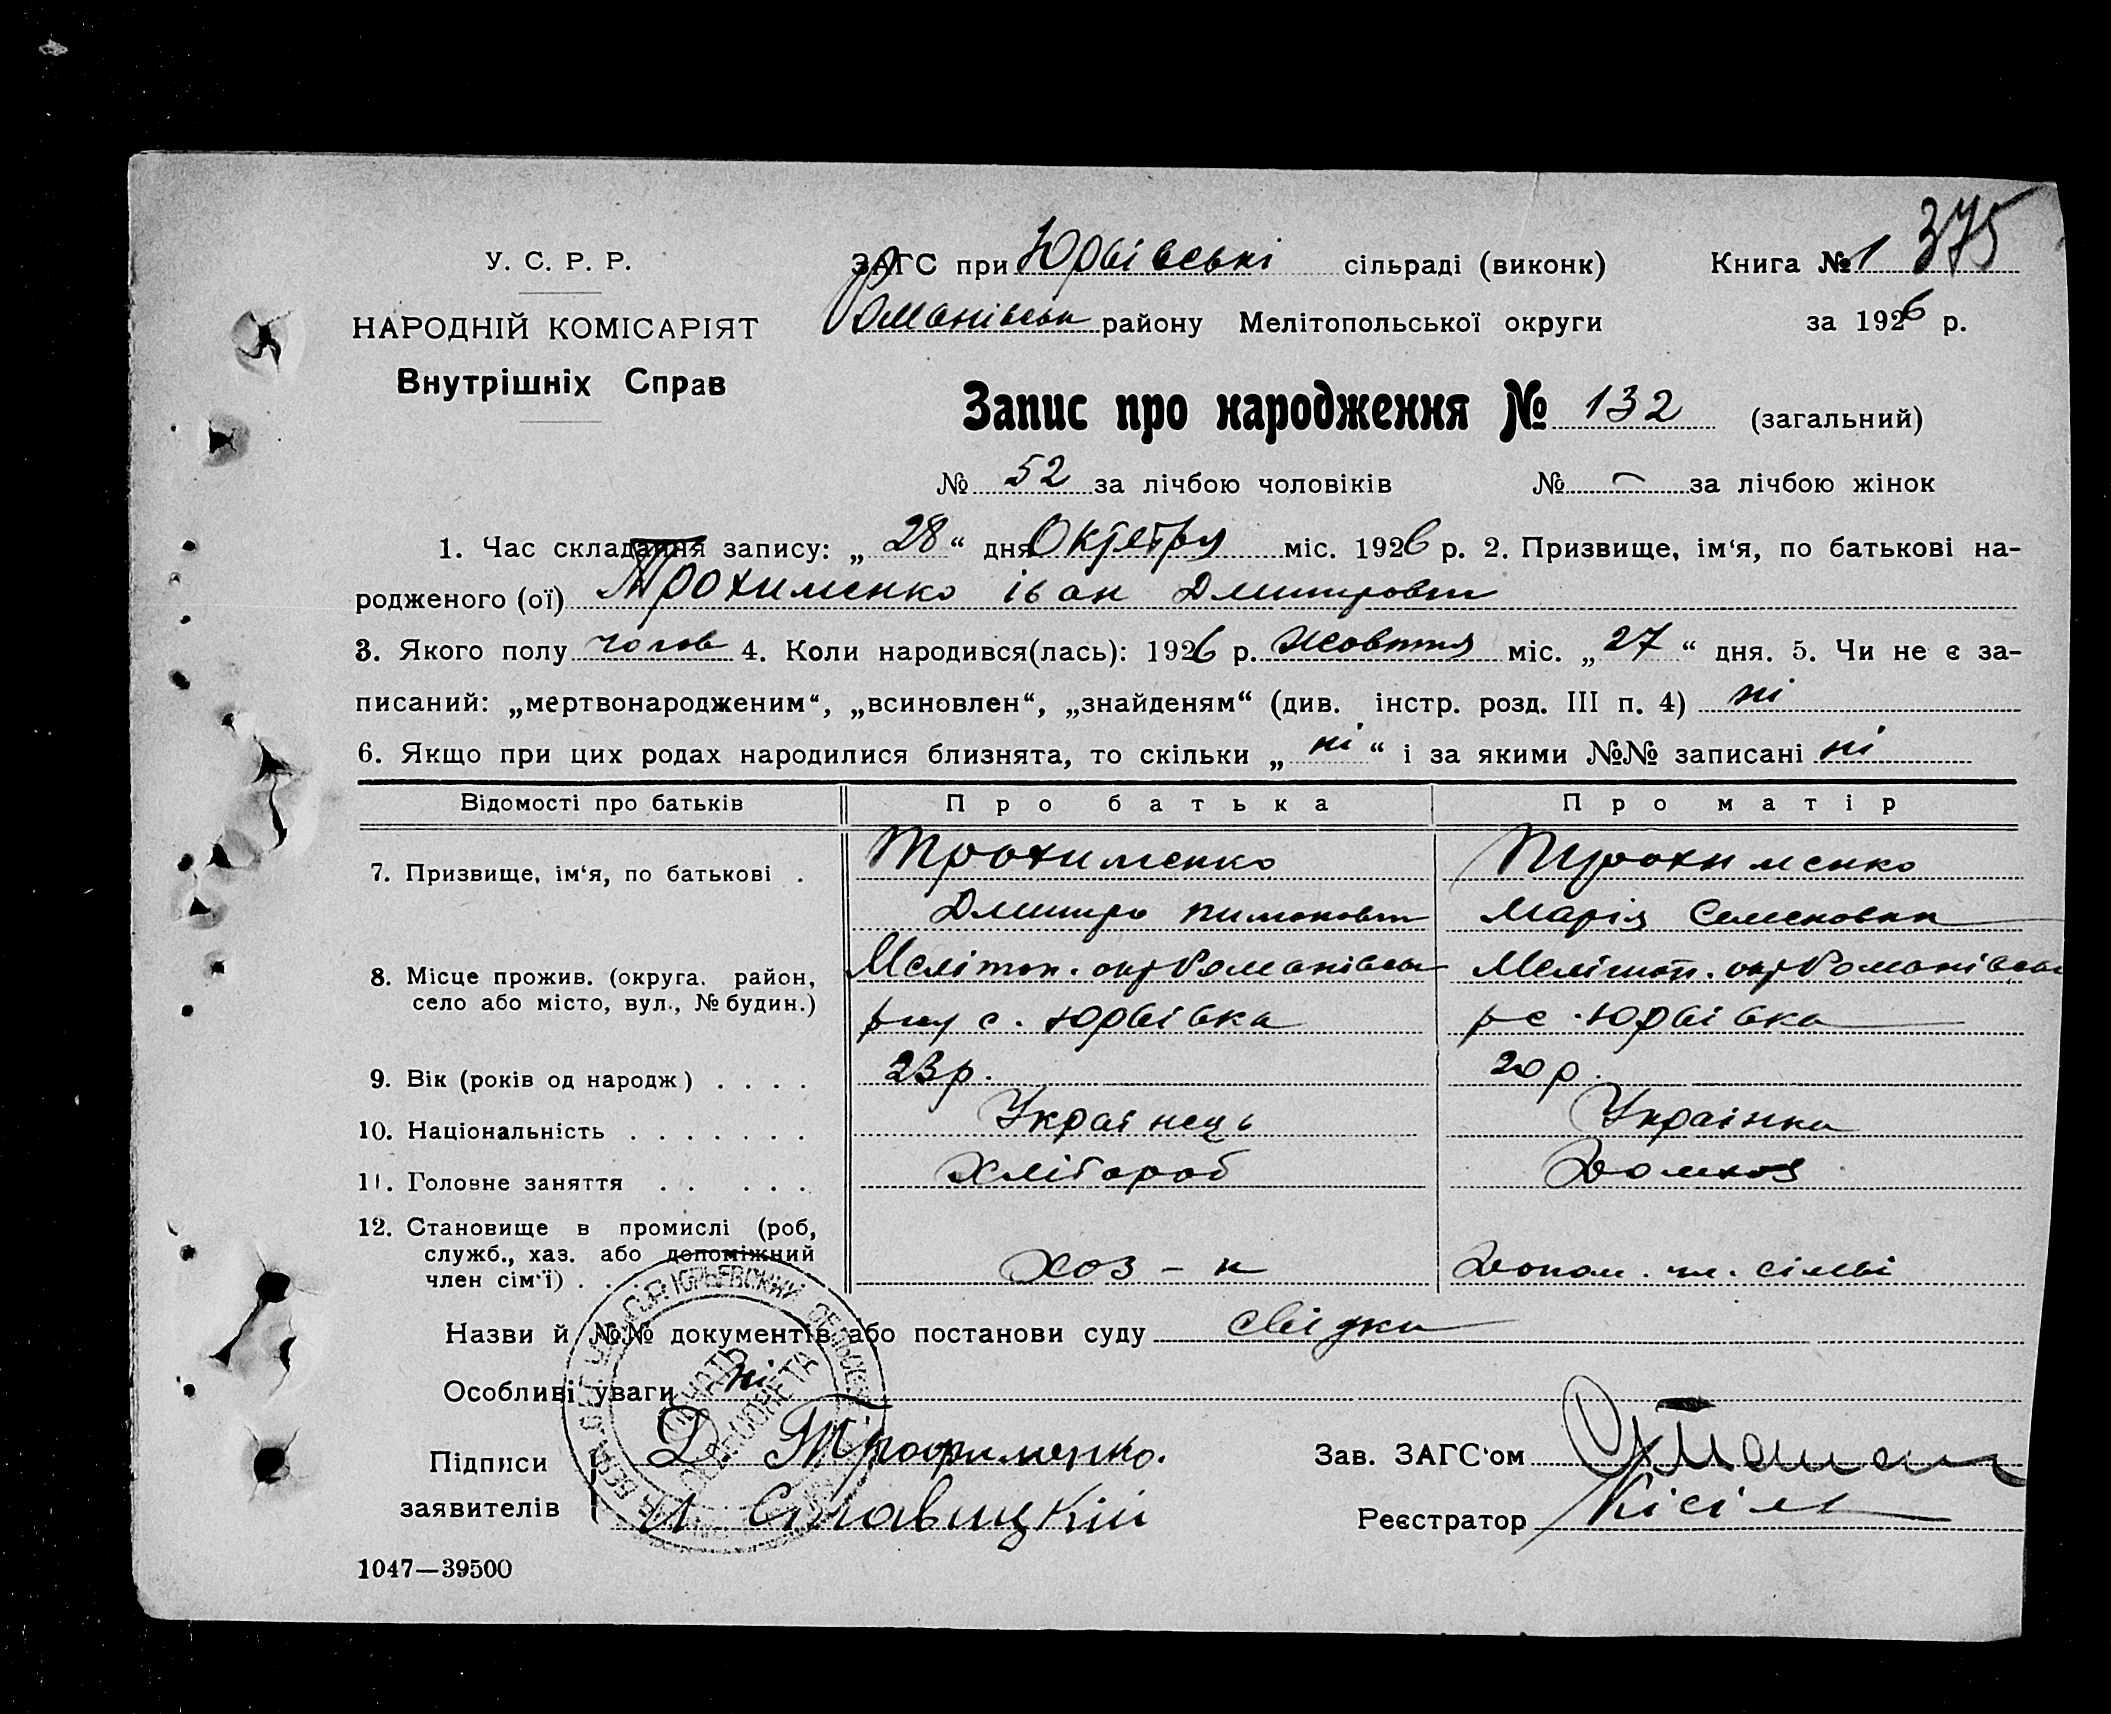 375
У. С. Р. Р.
ЗАГС при Юрвівські сільраді (виконк) Книга № 1
НАРОДНІЙ КОМІСАРІЯТ
Романівськ району Мелітопольської округи за 1926 р.
Внутрішніх Справ
Запис про народження № 132 (загальний)
№ 52 за лічбою чоловіків № – за лічбою жінок
1. Час складання запису: „ 28 “ дня Октября міс. 1926 р. 2. Призвище, ім‘я, по батькові на-
родженого (ої) Трохименко Іван Дмитрович
3. Якого полу чолов 4. Коли народився(лась): 1926 р. Жовтня міс. „ 27 “ дня. 5. Чи не є за-
писаний: „мертвонародженим“, „всиновлен“, „знайденям“ (див. інстр. розд. III п. 4) ні
6. Якщо при цих родах народилися близнята, то скільки „ ні “ і за якими №№ записані ні
Відомості про батьків Про батька Про матір
7. Призвище, ім‘я, по батькові . Трохименко Трохименко
Дмитро Пимонович Марія Семеновна
8. Місце прожив. (округа. район, Меліт оп. окр Романівськ Мелітоп. окр Романівськ
село або місто, вул., № будин.) рну с. Юрвівка р с. Юрвівка
9. Вік (років од народж) . . . . 23 р. 20 р.
10. Національність . . . . . . . Українець Українка
11. Головне заняття . . . . . Хлібороб Домхоз
12. Становище в промислі (роб,
служб., хаз. або допоміжний
член сім‘ї) . . . . хоз-н Допом. чл. сімьі
Назви й №№ документів або постанови суду свідки
Особливі уваги ні
Підписи Д Трофименко. Зав. ЗАГС‘ом
заявителів Ставицкій Реєстратор Кісіль
1047—39500